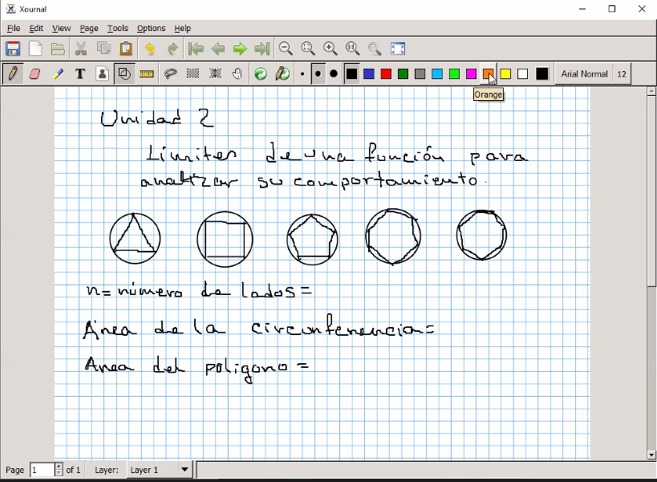 Xournal
File Edit View Page Tools Options Help
T Arial Normal 12
Orange
Unidad 2
Límites de una función para
analizar su comportamiento.
n= número de lados=
Área de la circunferencia=
Area del poligono =
Page 1 of 1 Layer: Layer 1